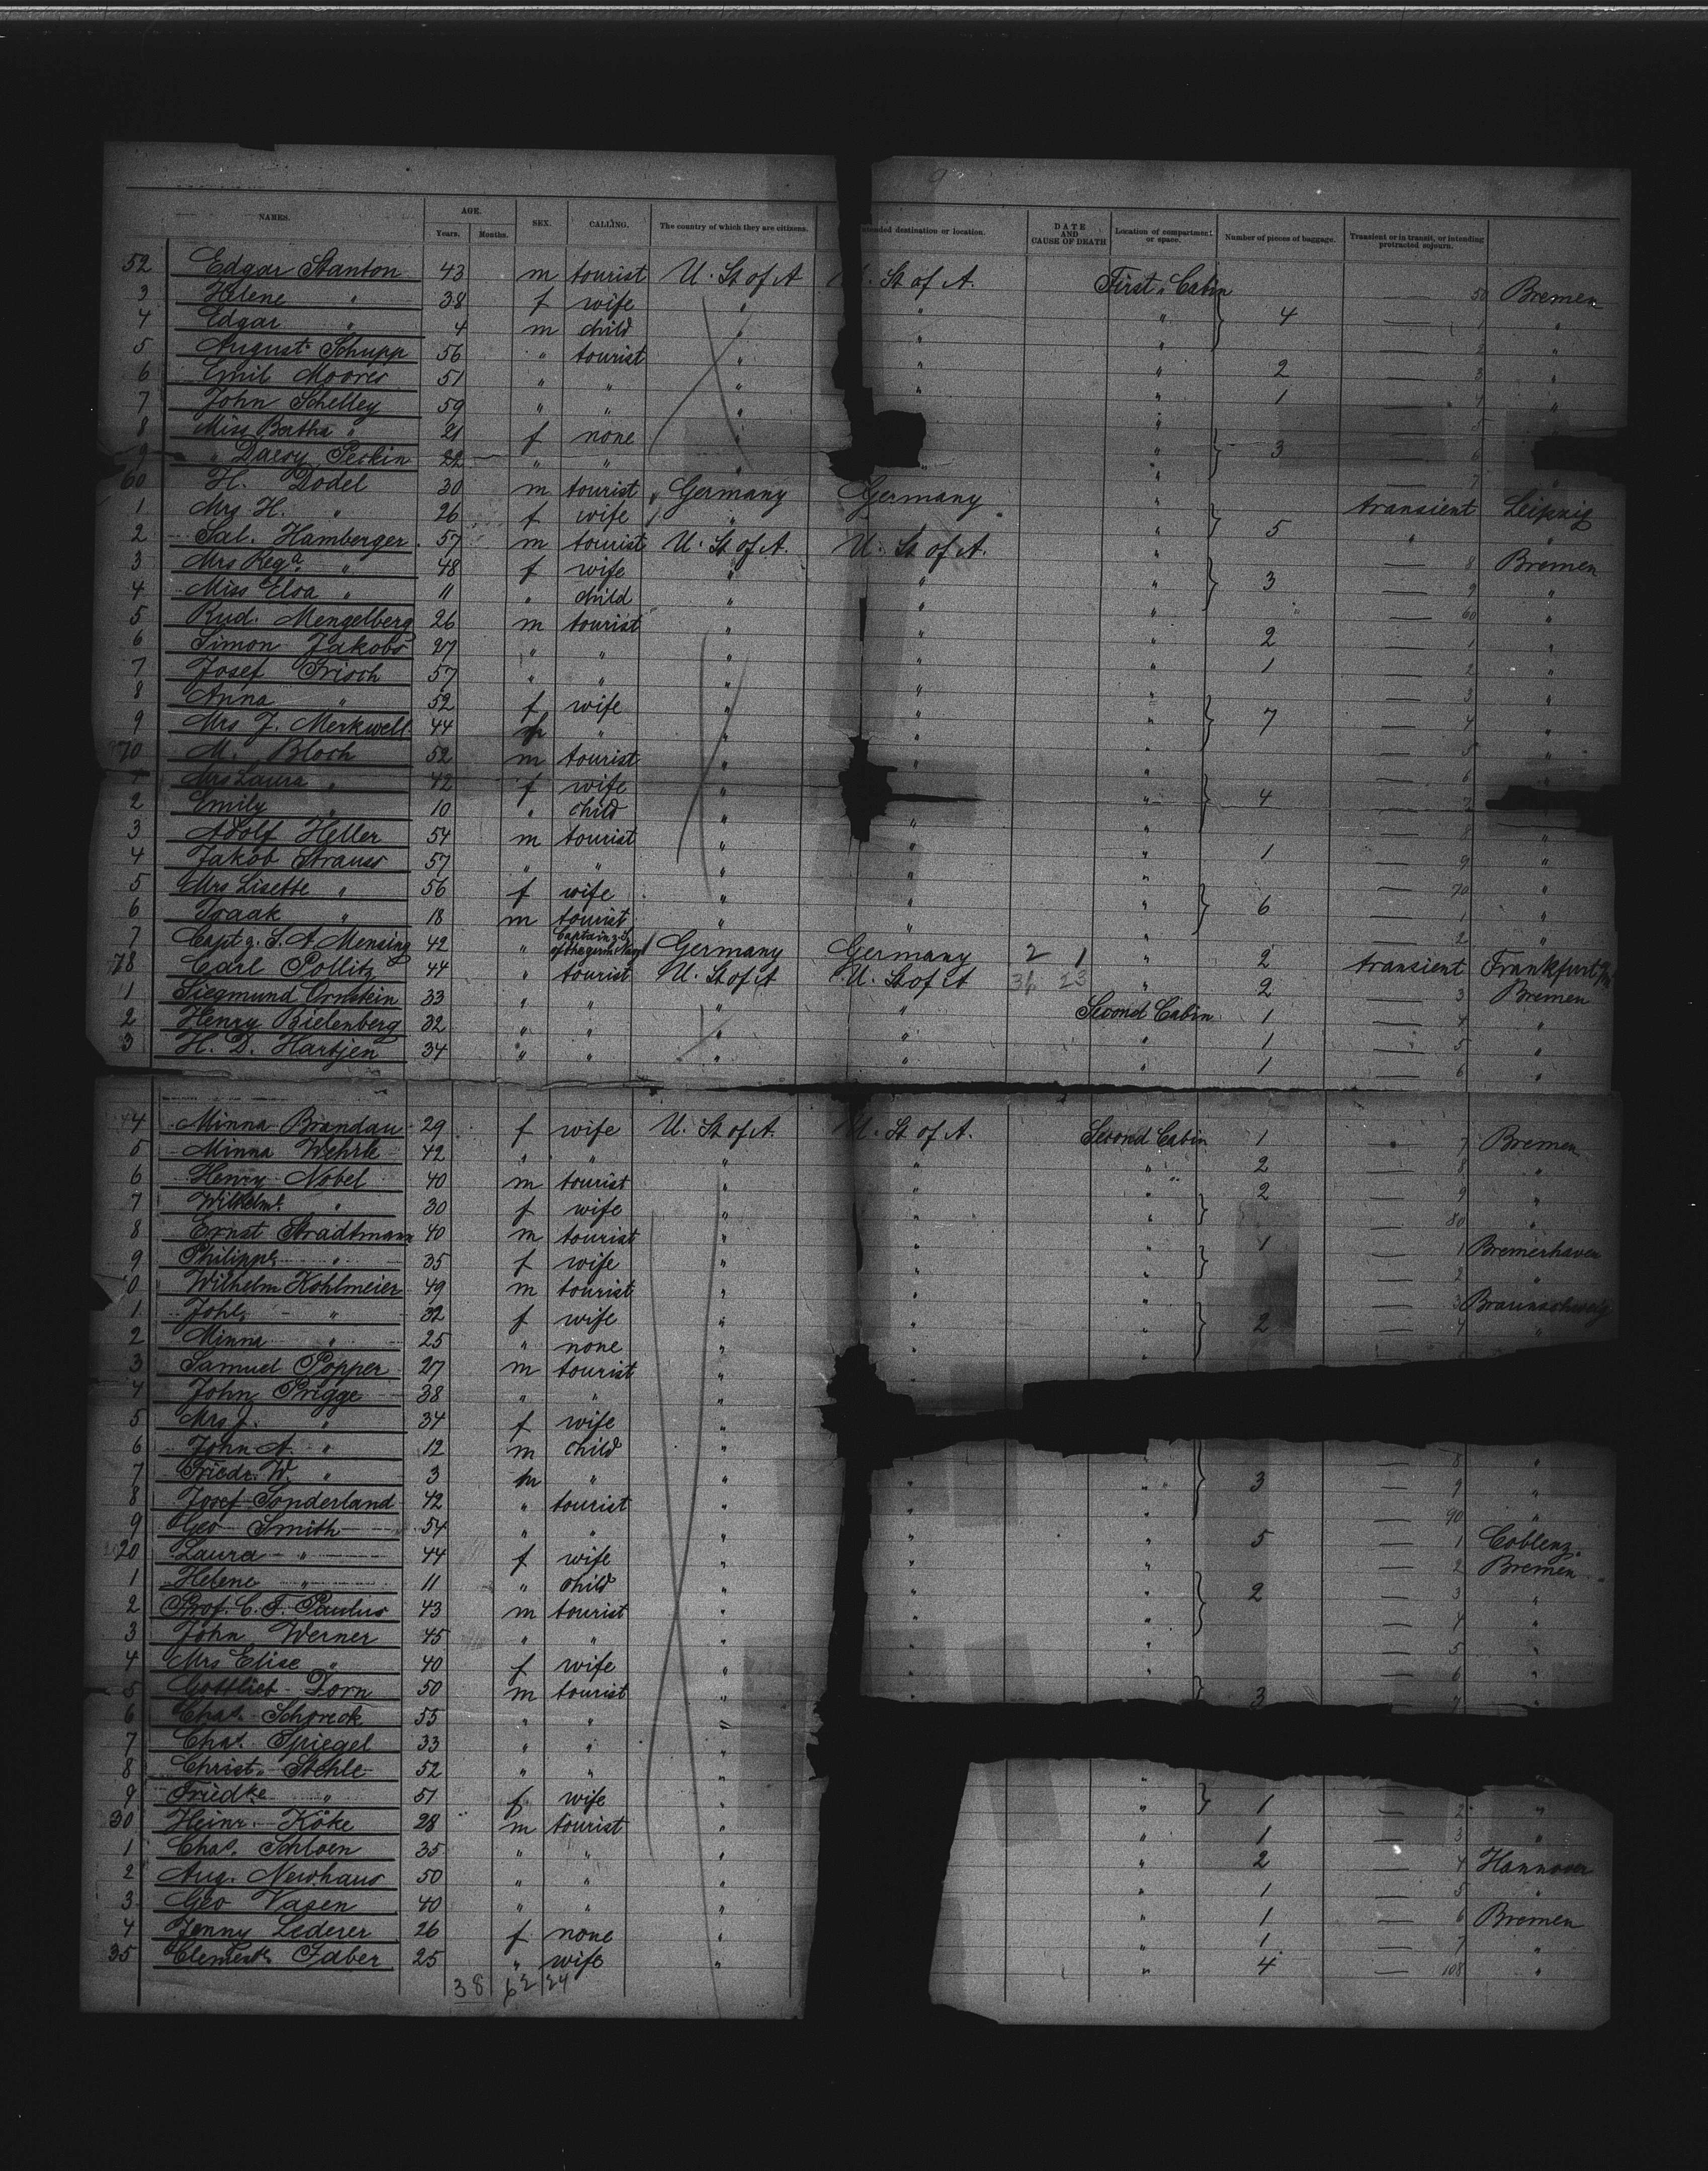 9
NAMES. AGE. Years. Months. SEX. CALLING. The country of which they are citizens. Intended destination or location. DATE AND CAUSE OF DEATH Location of compartment or space. Number of pieces of baggage. Transient or in transit, or intending protracted sojourn.
52 Edgar Stanton 43 m tourist U. St of A U. St of A. First Cabin — 50 Bremen
3 Helene " 38 f wife " " " 4 — 1 "
4 Edgar " 4 m child " " " — 2 "
5 August Schupp 56 " tourist " " " 2 — 3 "
6 Emil Moores 51 " " " " " 1 — 4 "
7 John Schelley 59 " " " " — 5 "
8 Miss Bertha " 21 f none " " 3 — 6
9 " Darry Perkin 22 " " " " " — 7 "
60 H. Dodel 30 m tourist Germany Germany " transient Leipzig
1 Mrs H. " 26 f wife " " " 5 " "
2 Sal. Hamberger 57 m tourist U. St of A. U. St of A. " — 8 Bremen
3 Mrs Rega " 48 f wife " " " 3 — 9 "
4 Miss Elsa " 11 " child " " " — 60 "
5 Rud. Mengelberg 26 m tourist " " " 2 — 1 "
6 Simon Jakobs 27 " " " " " 1 — 2 "
7 Josef Frisch 57 " " " " " — 3 "
8 Anna " 52 f wife " " " 7 — 4 "
9 Mrs J. Merkwell 44 " " " " — 5 "
70 M. Bloch 52 m tourist " " " — 6 "
1 Mrs Laura " 42 f wife " " 4 — 7
2 Emily " 10 " child " " " — 8 "
3 Adolf Heller 54 m tourist " " " 1 — 9 "
4 Jakob Strauss 57 " " " " " — 70 "
5 Mrs Lisette " 56 f wife " " " 6 — 1 "
6 Isaak " 18 m tourist " " " — 2 "
7 Capt z. S. A. Mensing 42 " Captain z. S. of the germ. Navy Germany Germany 2 1 " 2 transient Frankfurt a/M
78 Carl Pollitz 44 " tourist U. St of A U. St of A 36 23 " 2 — 3 Bremen
1 Siegmund Ornstein 33 " " " " Second Cabin 1 — 4 "
2 Henry Bielenberg 32 " " " " " 1 — 5 "
3 H. D. Hartjen 34 " " " " " 1 — 6 "
4 Minna Brandau 29 f wife U. St of A. U. St of A. Second Cabin 1 7 Bremen
5 Minna Wehrle 42 " " " " " 2 — 8 "
6 Henry Nobel 40 m tourist " " " 2 — 9 "
7 Wilhelme " 30 f wife " " " — 80 "
8 Ernst Stradtmann 40 m tourist " " " 1 — 1 Bremerhaven
9 Philippe " 35 f wife " " " — 2 "
0 Wilhelm Kohlmeier 49 m tourist " " " — 3 Braunschweig
1 Johe " 32 f wife " " " 2 — 4 "
2 Minna " 25 " none " " "
3 Samuel Popper 27 m tourist " "
4 John Prigge 38 " " "
5 Mrs J. " 34 f wife "
6 John A. " 12 m child " — 8 "
7 Friedr. W. " 3 m " " " " 3 — 9 "
8 Josef Sonderland 42 " tourist " " " — 90 "
9 Geo Smith 54 " " " " " 5 — 1 Coblenz
20 Laura " 44 f wife " " " — 2 Bremen
1 Helene " 11 " child " " " 2 — 3 "
2 Prof. C. F. Paulus 43 m tourist " " " — 4 "
3 John Werner 45 " " " " " — 5 "
4 Mrs Elise " 40 f wife " " " — 6 "
5 Gottlieb Dorn 50 m tourist " " 3 — 7 "
6 Chas. Schreck 55 " " "
7 Chas. Spiegel 33 " " "
8 Christ. Stehle 52 " " " "
9 Friedke " 51 f wife " " 1 — 2 "
30 Heinr. Köke 28 m tourist " " 1 — 3 "
1 Chas. Schloen 35 " " " " 2 — 4 Hannover
2 Aug. Newhaus 50 " " " " 1 — 5 "
3 Geo Vasen 40 " " " " 1 — 6 Bremen
4 Jenny Lederer 26 f none " " 1 — 7 "
35 Faber 25 " wife " " 4 — 108 "
38 62 24